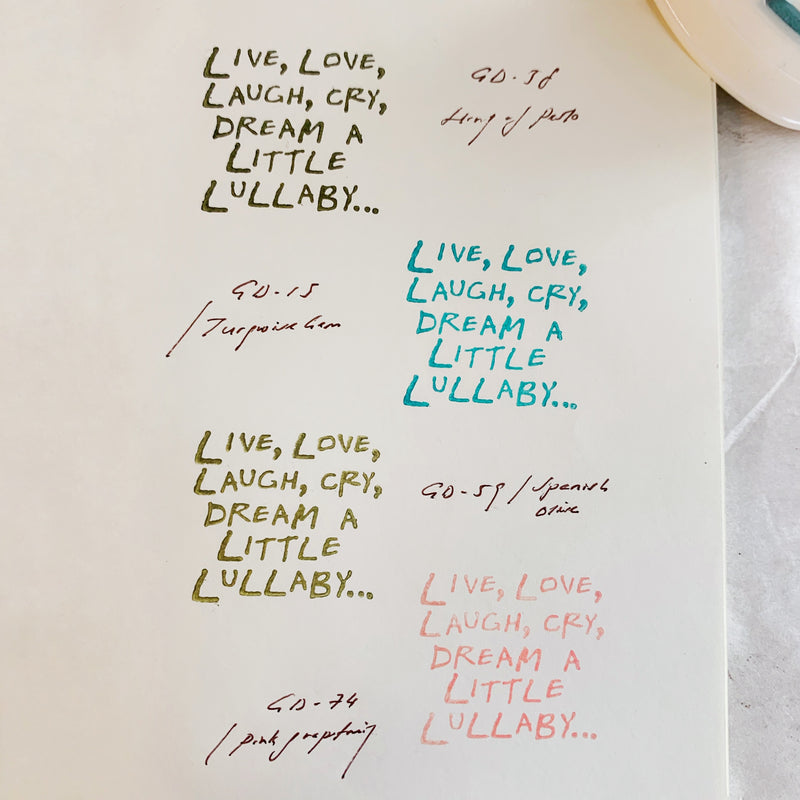 LIVE, LOVE,
LAUGH, CRY,
DREAM A
LITTLE
LULLABY...
GD-38
of Pesto
LIVE, LOVE,
LAUGH, CRY,
DREAM A
LITTLE
LULLABY...
GD-15
/Turquoise Gem
LIVE, LOVE,
LAUGH, CRY,
DREAM A
LITTLE
LULLABY...
GD-59 / Spanish
olive
LIVE, LOVE,
LAUGH, CRY,
DREAM A
LITTLE
LULLABY...
GD-74
/ pink grapefruit